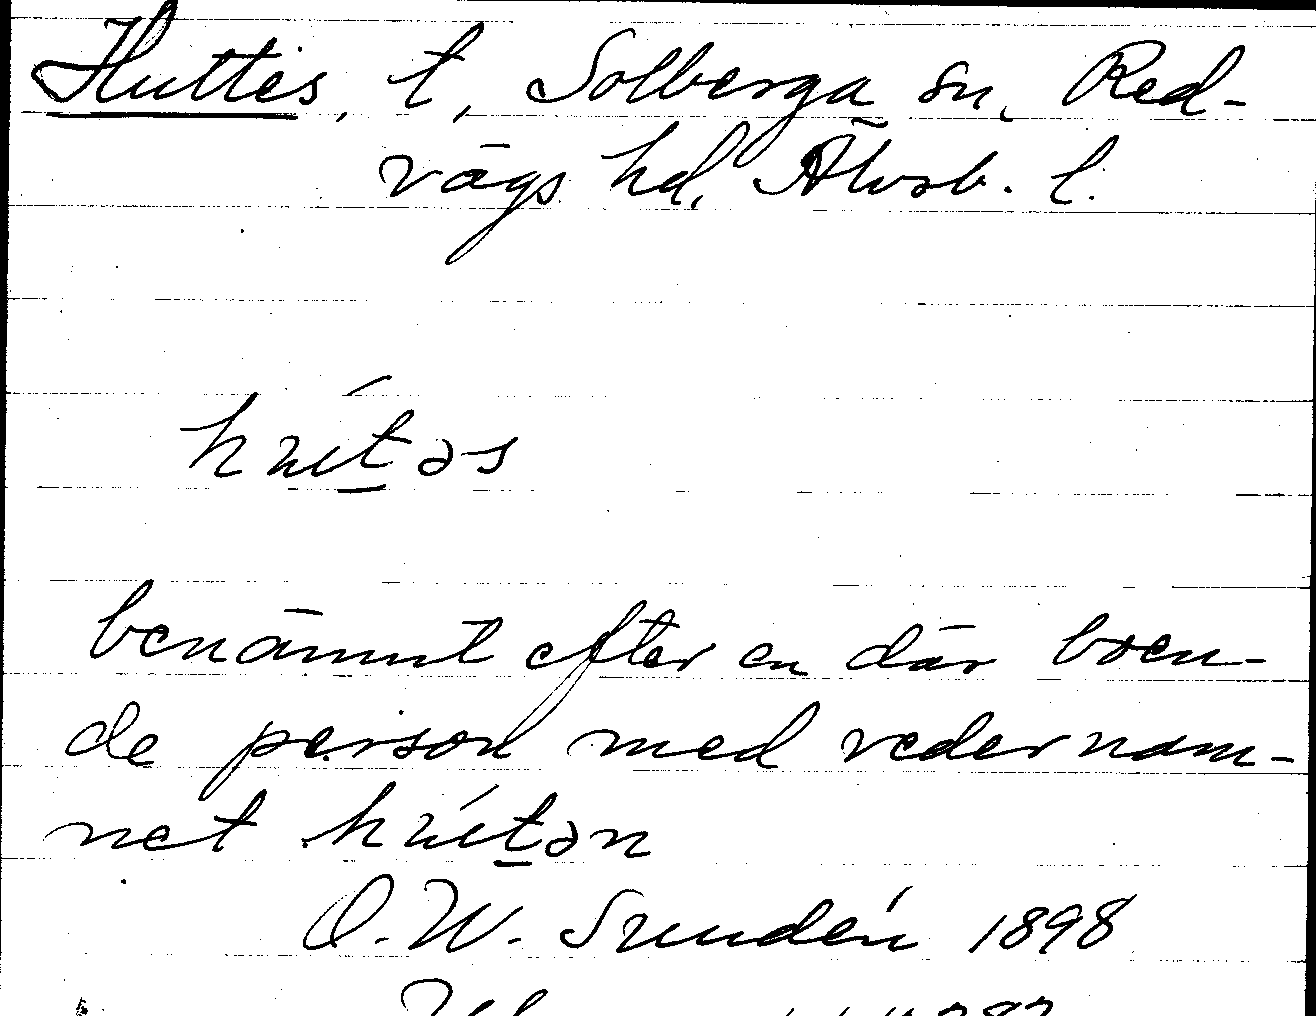 Huttes, t, Solberga sn, Red-
vägs hd, Älvsb. l.
hut̲əs
benämnt efter en där boen-
de person med vedernam-
net hut̲ən
O. W. Sundén 1898